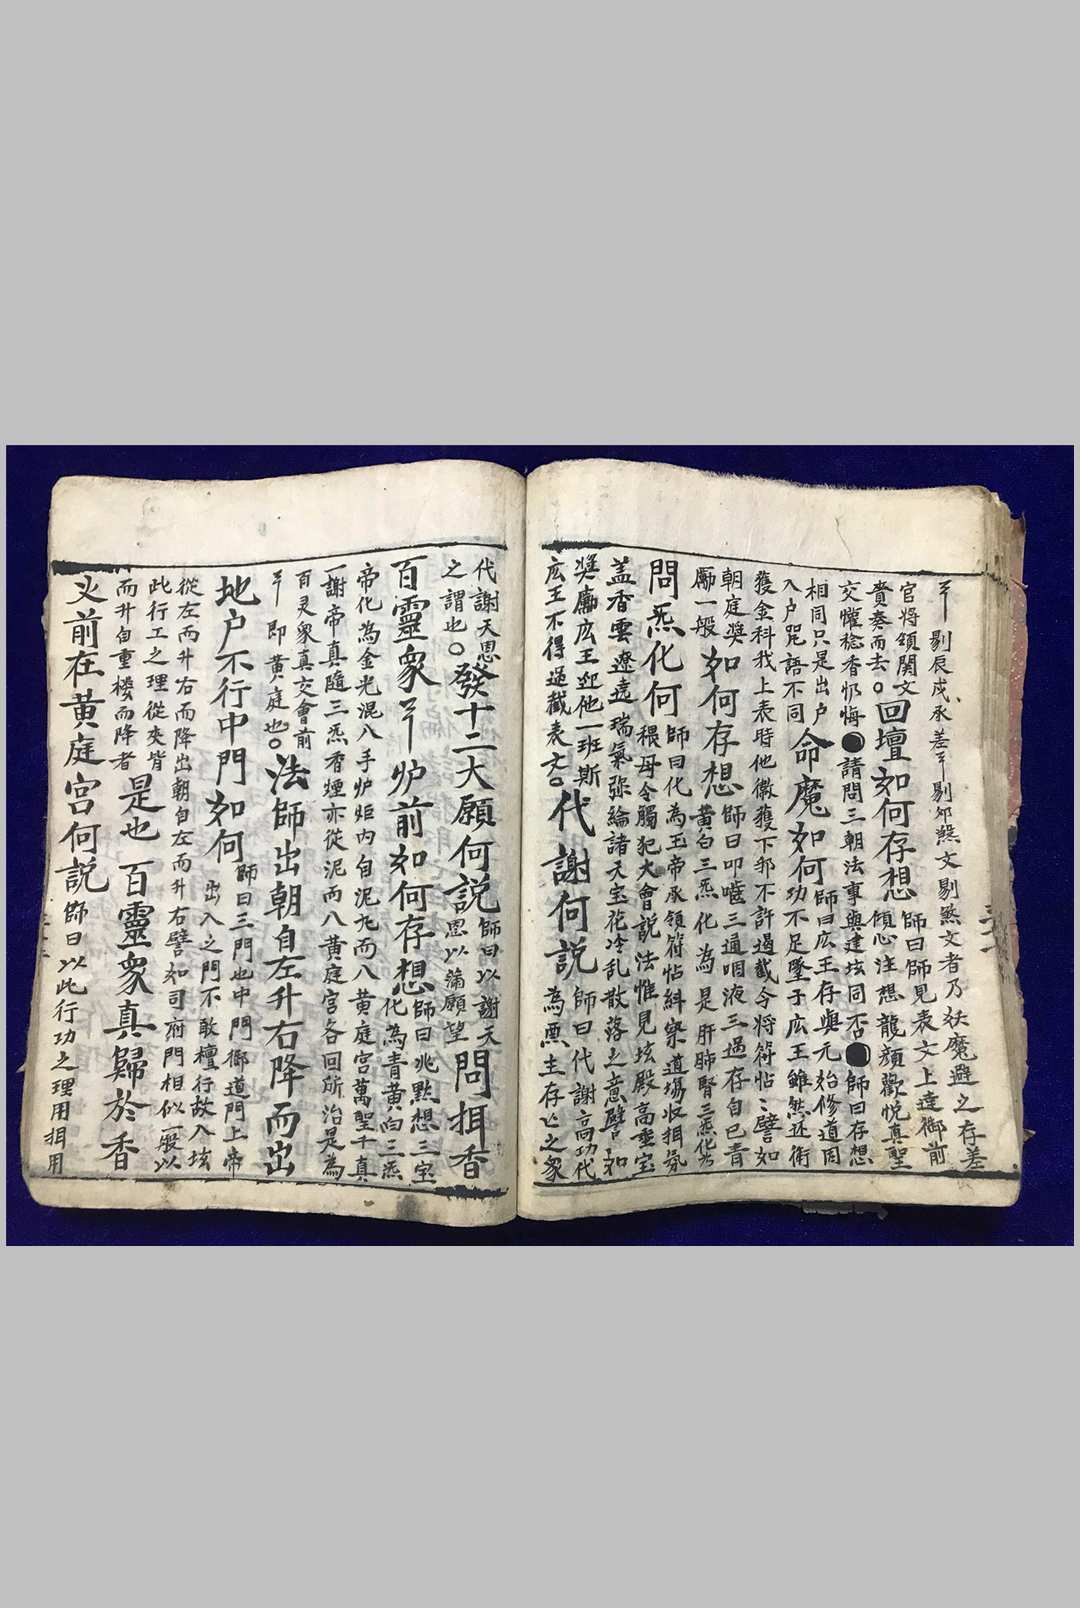 剔辰戌承差 剔邜煞文剔煞文者乃妖魔避之存差
官將領関文
賫奏而去。回壇如何存想師曰師見表文上達御前
傾心注想龍顔歡悦真聖
交懽稔香忏悔●請問三朝法事與建坛同否●師曰存想
相同只是出户
入户咒語不同命魔如何師曰庅王存與元始修道因
功不足墜于庅王雖然还術
獲金科我上表時他徼獲下邪不許過截今将符帖〻譬如
朝庭奬
勵一般如何存想師曰叩齒三通咽液三過存自己青
黄白三炁化為是肝肺腎三炁化为
問炁化何師曰化為玉帝承領符帖糾察道場收揖氛
穢毋令觸犯大會説法惟見坛殿高垂宝
盖香雲遼遠瑞氣弥綸諸天宝花冷乱散落之意譬如
奬勵庅王迎他一班斯
庅王不得遏截表文。代謝何説師曰代謝高功代
為斋主存亡之衆
代謝天恩
之謂也。發十二大願何説師曰以謝天
恩以滿願望問揖香
百靈衆 炉前如何存想師曰兆黙想三宝
化為青黄白三炁
帝化為金光混八手炉炬内自泥丸而八黄庭宫萬聖千真
一謝帝真隨三炁香煙亦從泥而八黄庭宫各回所治是為
百灵衆真交會前
即黄庭也。法師出朝自左升右降而出
地户不行中門如何師曰三門也中門御道門上帝
出入之門不敢檀行故入坛
從左而升右而降出朝自左而升右譬如司府門相似一般以
此行工之理從夾皆
而升自重楼而降者是也百靈衆真歸於香
火前在黄庭宫何説師曰以此行功之理用揖用